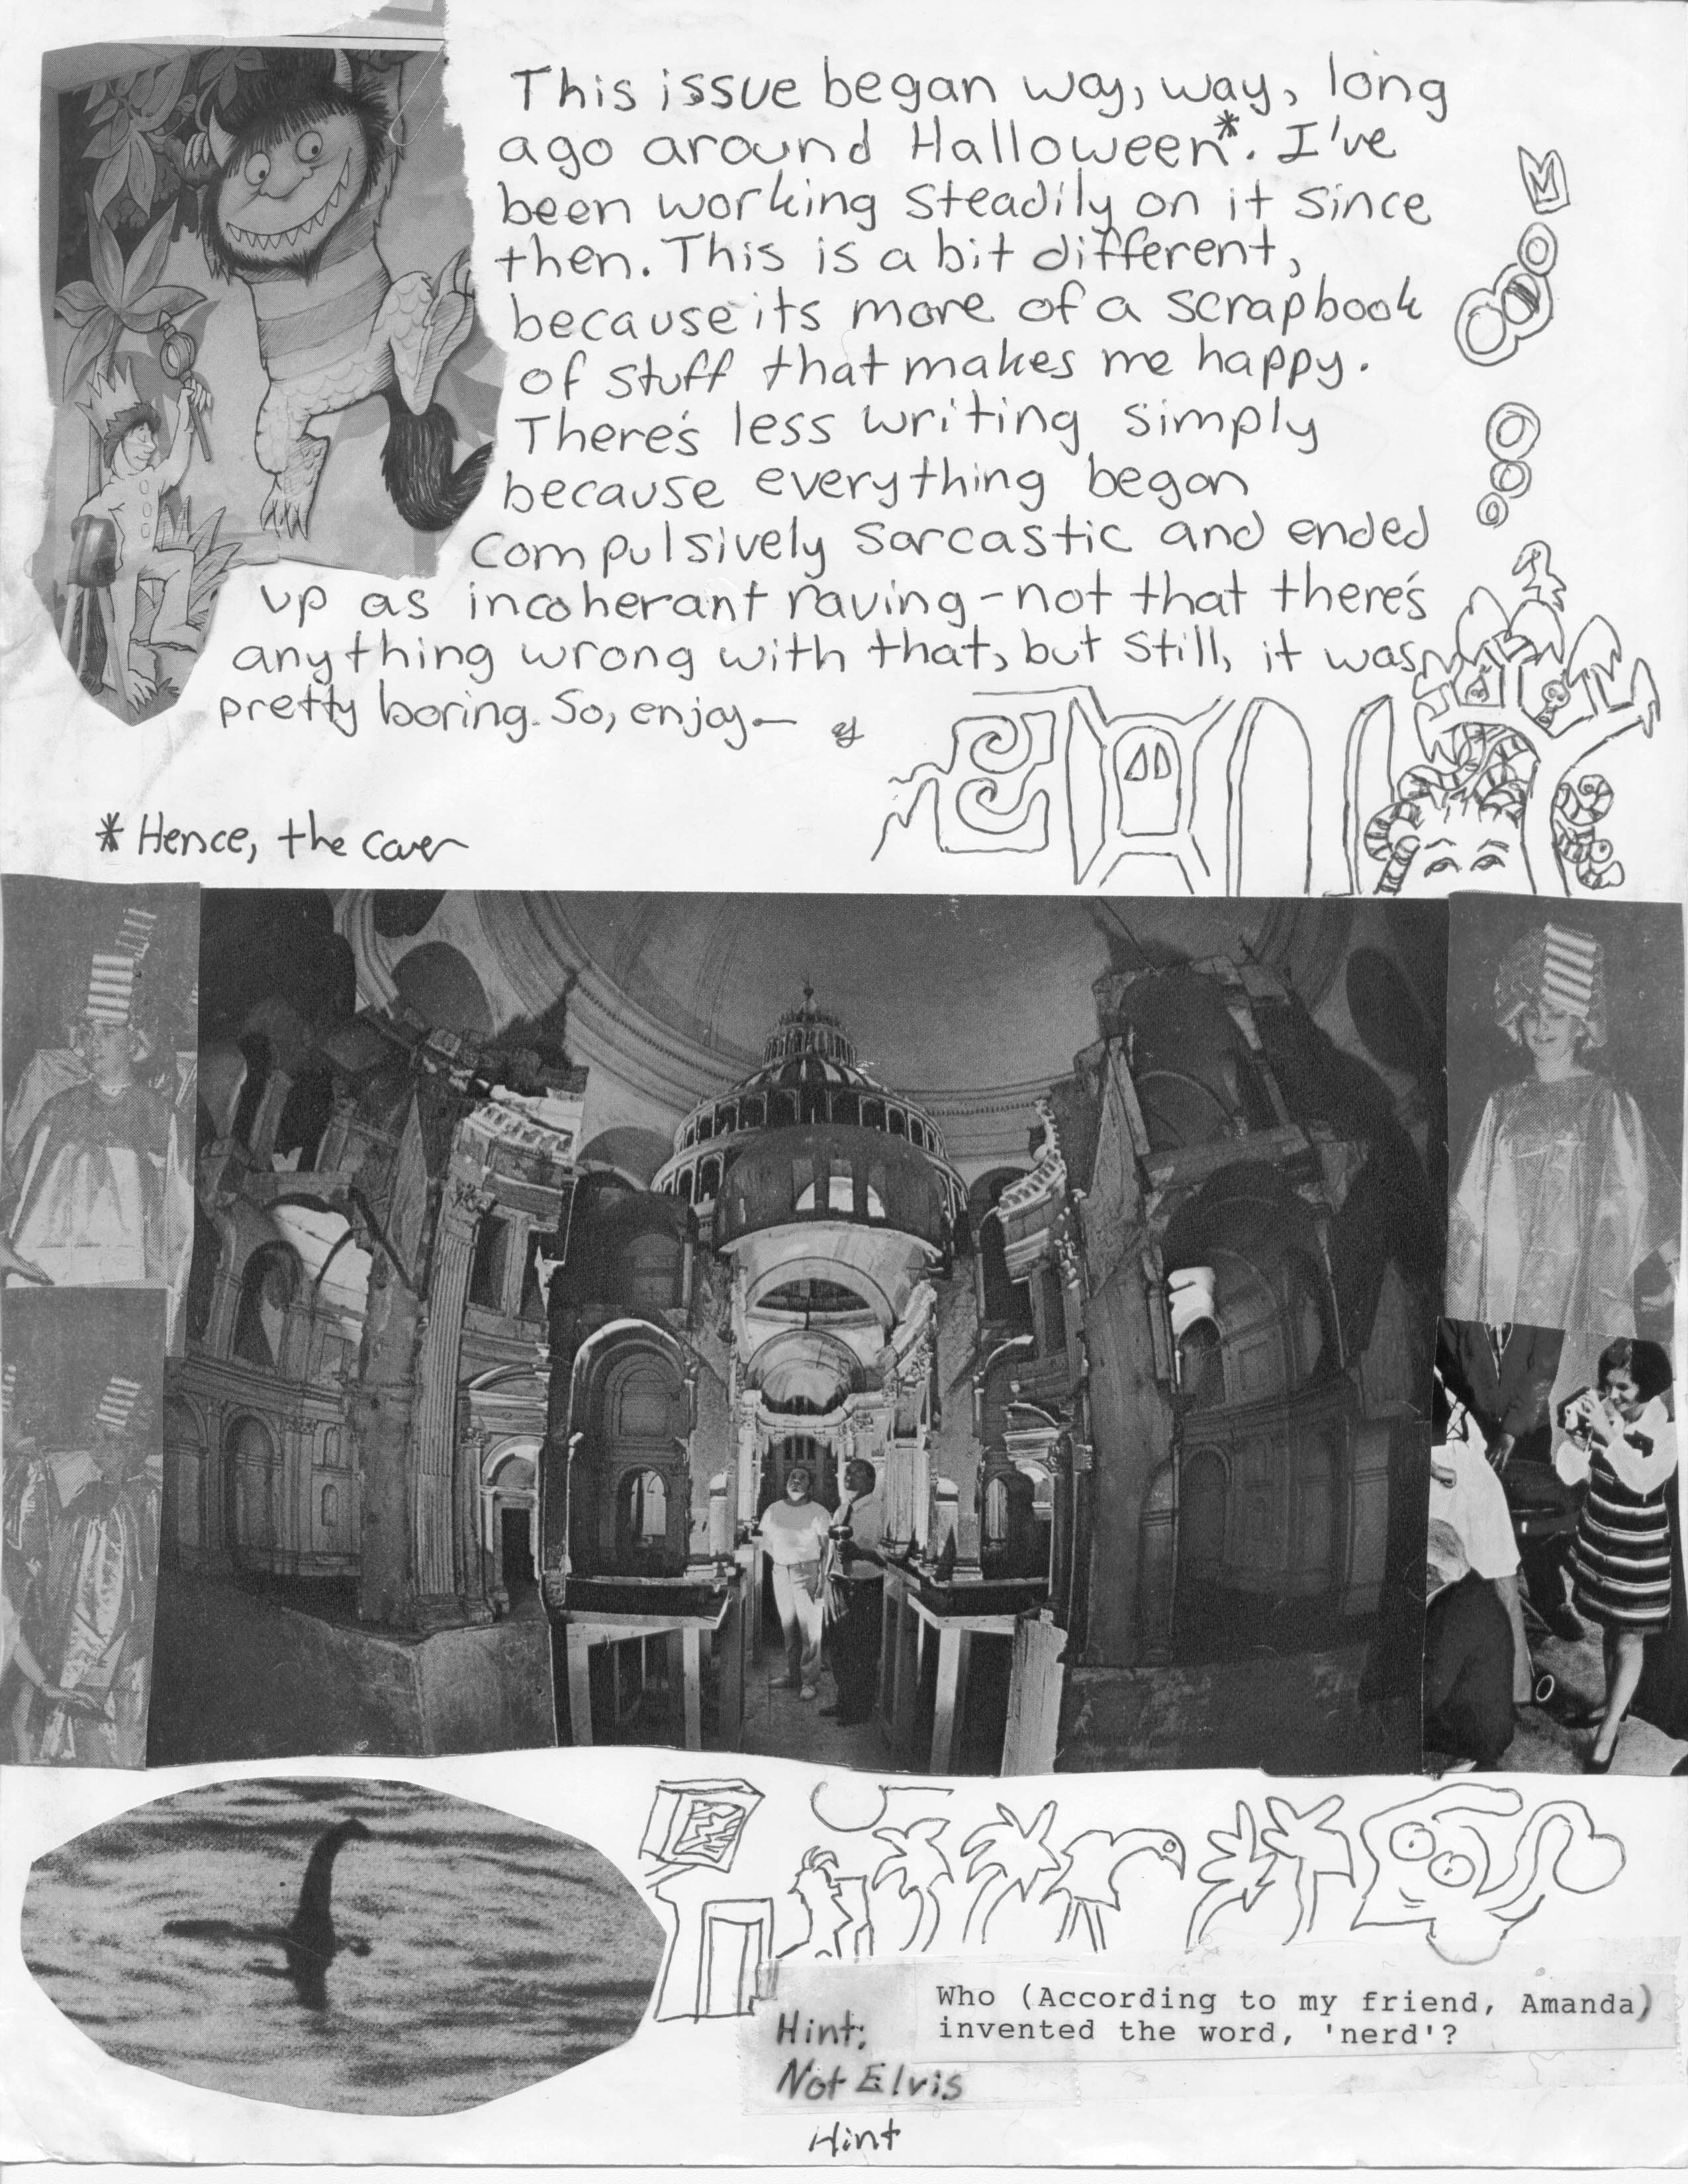 This issue began way, way, long
ago around Halloween*. I've
been working steadily on it since
then. This is a bit different,
because its more of a scrapbook
of stuff that makes me happy.
There's less writing simply
because everything began
compulsively sarcastic and ended
up as incoherant raving-not that there's
anything wrong with that, but still, it was
pretty boring. So, enjoy—
* Hence, the cover
Who (According to my friend, Amanda)
invented the word, 'nerd'?
Hint:
Not Elvis
Hint